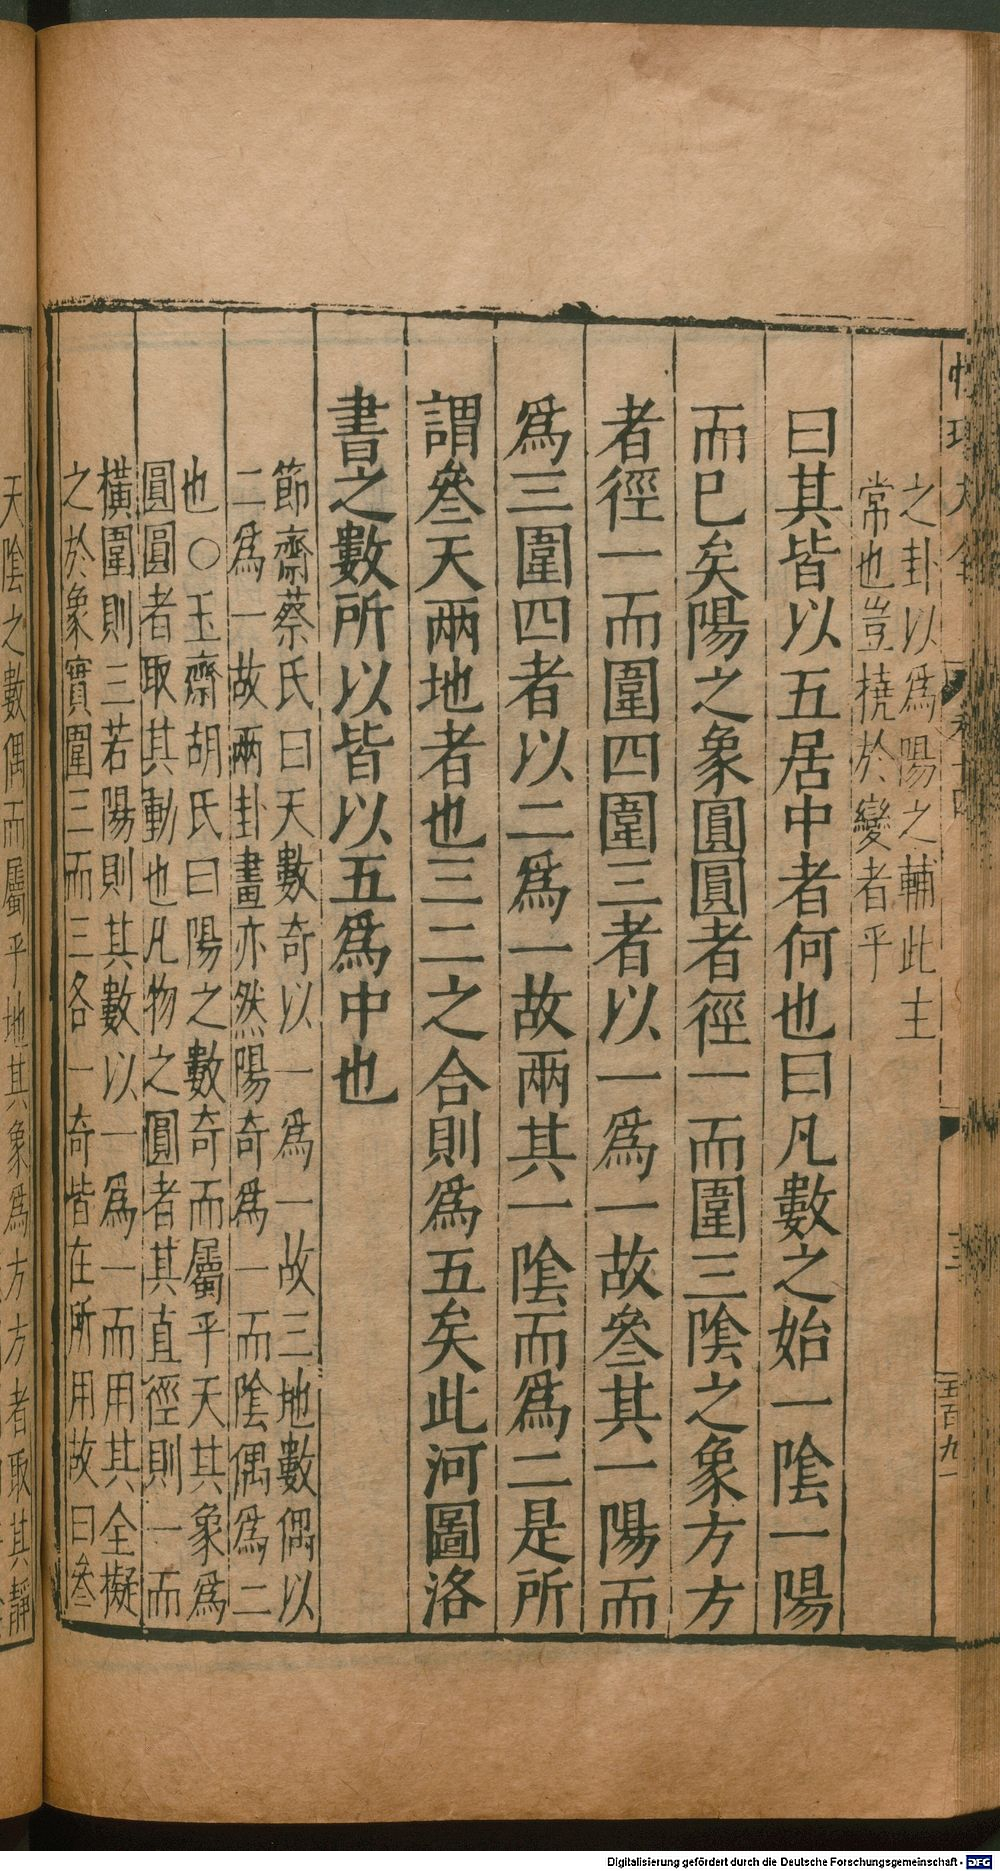 性理大全 卷十四 三 五百九一
之卦以為陽之輔此主
常也豈撓於變者乎
曰其皆以五居中者何也曰凡數之始一陰一陽
而已矣陽之象圓圓者徑一而圍三陰之象方方
者徑一而圍四圍三者以一爲一故參其一陽而
爲三圍四者以二爲一故兩其一陰而爲二是所
謂參天兩地者也三二之合則爲五矣此河圖洛
書之數所以皆以五爲中也
節齋蔡氏曰天數奇以一爲一故三地數偶以
二爲一故兩卦畫亦然陽奇爲一而陰偶爲二
也○玉齋胡氏曰陽之數奇而屬乎天其象爲
圓圓者取其動也凡物之圓者其直徑則一而
橫圍則三若陽則其數以一爲一而用其全擬
之於象實圍三而三各一奇皆在所用故曰參
天陰之數偶而屬乎地其象爲方方者取其靜
Digitalisierung gefördert durch die Deutsche Forschungsgemeinschaft - DFG